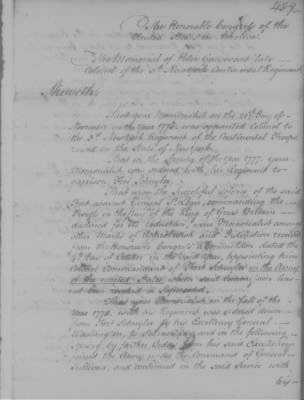 489
The Honorable Congress of the
United States in America.
The Memorial of Peter Gansevoort late
Colonel of the 3d New York Continental Regiment
Sheweth,
That your Memorialist on the 21st Day of
November in the Year 1776 was appointed Colonel to
the 3d New York Regiment of the Continental Troops
raised in the State of New York.
That in the Spring of the Year 1777 your
Memorialist was ordered with his Regiment to
garrison Fort Schuyler.
That upon the Successful Defence of the said
Fort against General St. Leger, commanding the
Troops in the Army of the King of Great Britain
destined for its reduction, your Memorialist among
other Marks of Approbation and Distinction received
from the Honorable Congress a Commission dated the
4th Day of October in the said Year, appointing him
Colonel Commandant of Fort Schuyler in the Army
of the united States, which said Commission has
not been revoked or superseded.
That your Memorialist in the fall of the
Year 1778, with his Regiment was ordered down
from Fort Schuyler by his Excellency General
Washington, to Schenectady and in the following
Spring by further Orders from his said Excellency
joined the Army under the Command of General
Sullivan, and continued in the said Service with
his